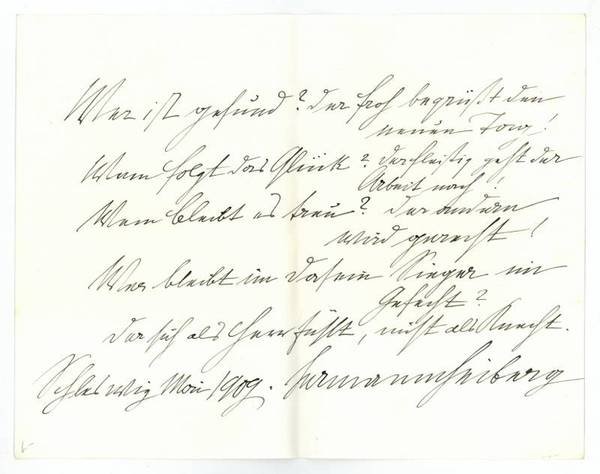 Wer ist gesund? Der froh begrüßt den
neuen Tag!
Wem folgt das Glück? Der fleißig geht der
Arbeit nach!
Wem bleibt es treu? Der andern
wird gerecht!
Wer bleibt im Dasein Sieger im
Gefecht?
Der sich als Herr fühlt, nicht als Knecht.
Schleswig Mai 1909. Hermann Heiberg